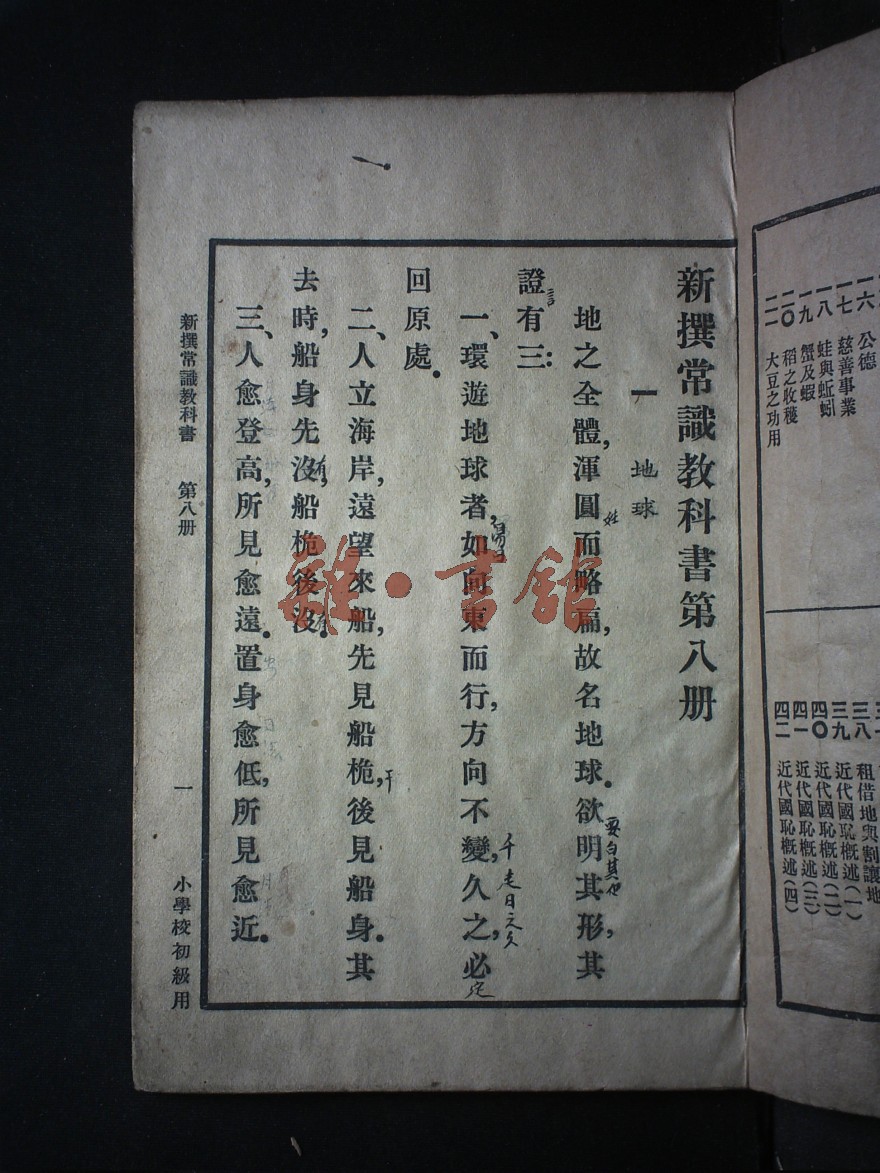 一六　公德
一七　慈善事業
一八　蛙與蚯蚓
一九　蟹及蝦
二〇　稻之收穫
二一　大豆之功用
三八　租借地與割讓地
三九　近代國恥概述(一)
四〇　近代國恥概述(二)
四一　近代國恥概述(三)
四二　近代國恥概述(四)
新撰常識教科書第八册
一　地球
地之全體,渾圓而略扁,故名地球。欲明其形,其
證有三:
一、環遊地球者,如向東而行,方向不變,久之,必
回原處。
二、人立海岸,遠望來船,先見船桅,後見船身。其
去時,船身先沒,船桅後沒。
三、人愈登高,所見愈遠。置身愈低,所見愈近。
新撰常識教科書　第八册　一　小學校初級用
言
干
雜·書館